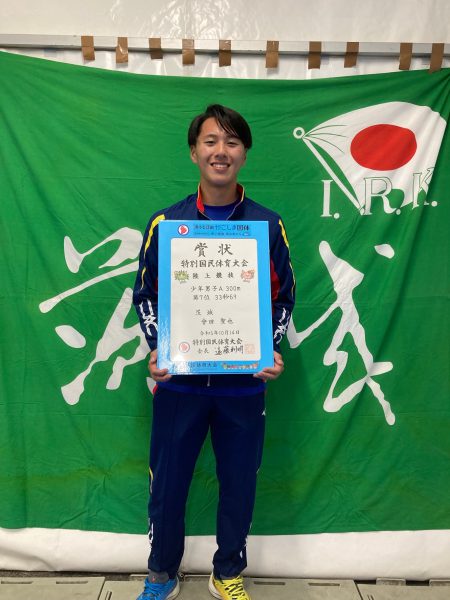 I.R.K.
茨城
燃ゆる感動かごしま国体
賞状
特別国民体育大会
陸上競技
少年男子A 300m
第7位 33秒69
茨城
會田 聖也
令和5年10月14日
特別国民体育大会
会長 遠藤利明